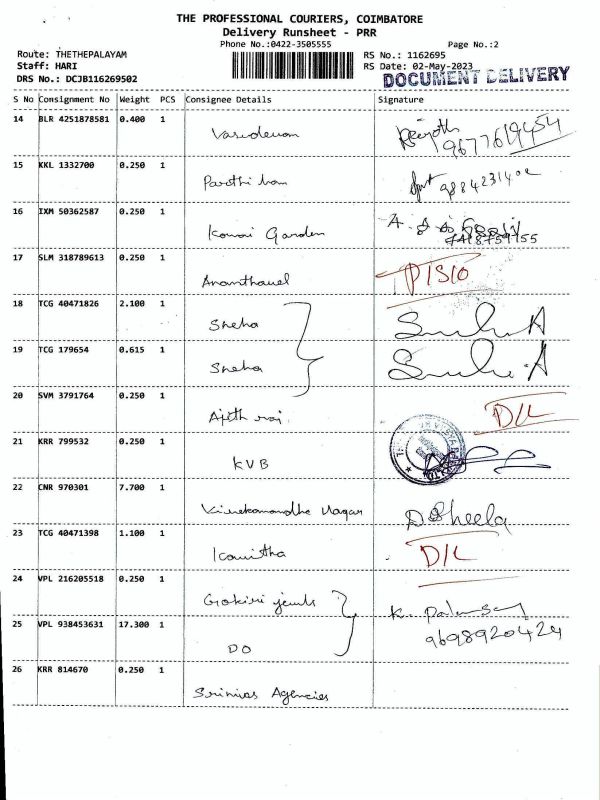 THE PROFESSIONAL COURIERS, COIMBATORE
Delivery Runsheet - PRR
Phone No.:0422-3505555
Page No.:2
Route: THETHEPALAYAM
RS No.: 1162695
Staff: HARI
RS Date: 02-May-2023
DRS No.: DCJB116269502
DOCUMENT DELIVERY
S No Consignment No Weight PCS Consignee Details Signature
14 BLR 4251878581 0.400 1
Vasudevan
9677619454
15 KKL 1332700 0.250 1
Parthiban
9884231402
16 IXM 50362587 0.250 1
Kovai Garden
17 SLM 318789613 0.250 1
Ananthavel
18 TCG 40471826 2.100 1
Sneha
19 TCG 179654 0.615 1
Sneha
20 SVM 3791764 0.250 1
Ajith raj
D/L
21 KRR 799532 0.250 1
KVB
22 CNR 970301 7.700 1
Vivekanandha Nagar
D Sheela
23 TCG 40471398 1.100 1
Kavitha
D/L
24 VPL 216205518 0.250 1
25 VPL 938453631 17.300 1
DO
9698920424
26 KRR 814670 0.250 1
Srinivas Agencies